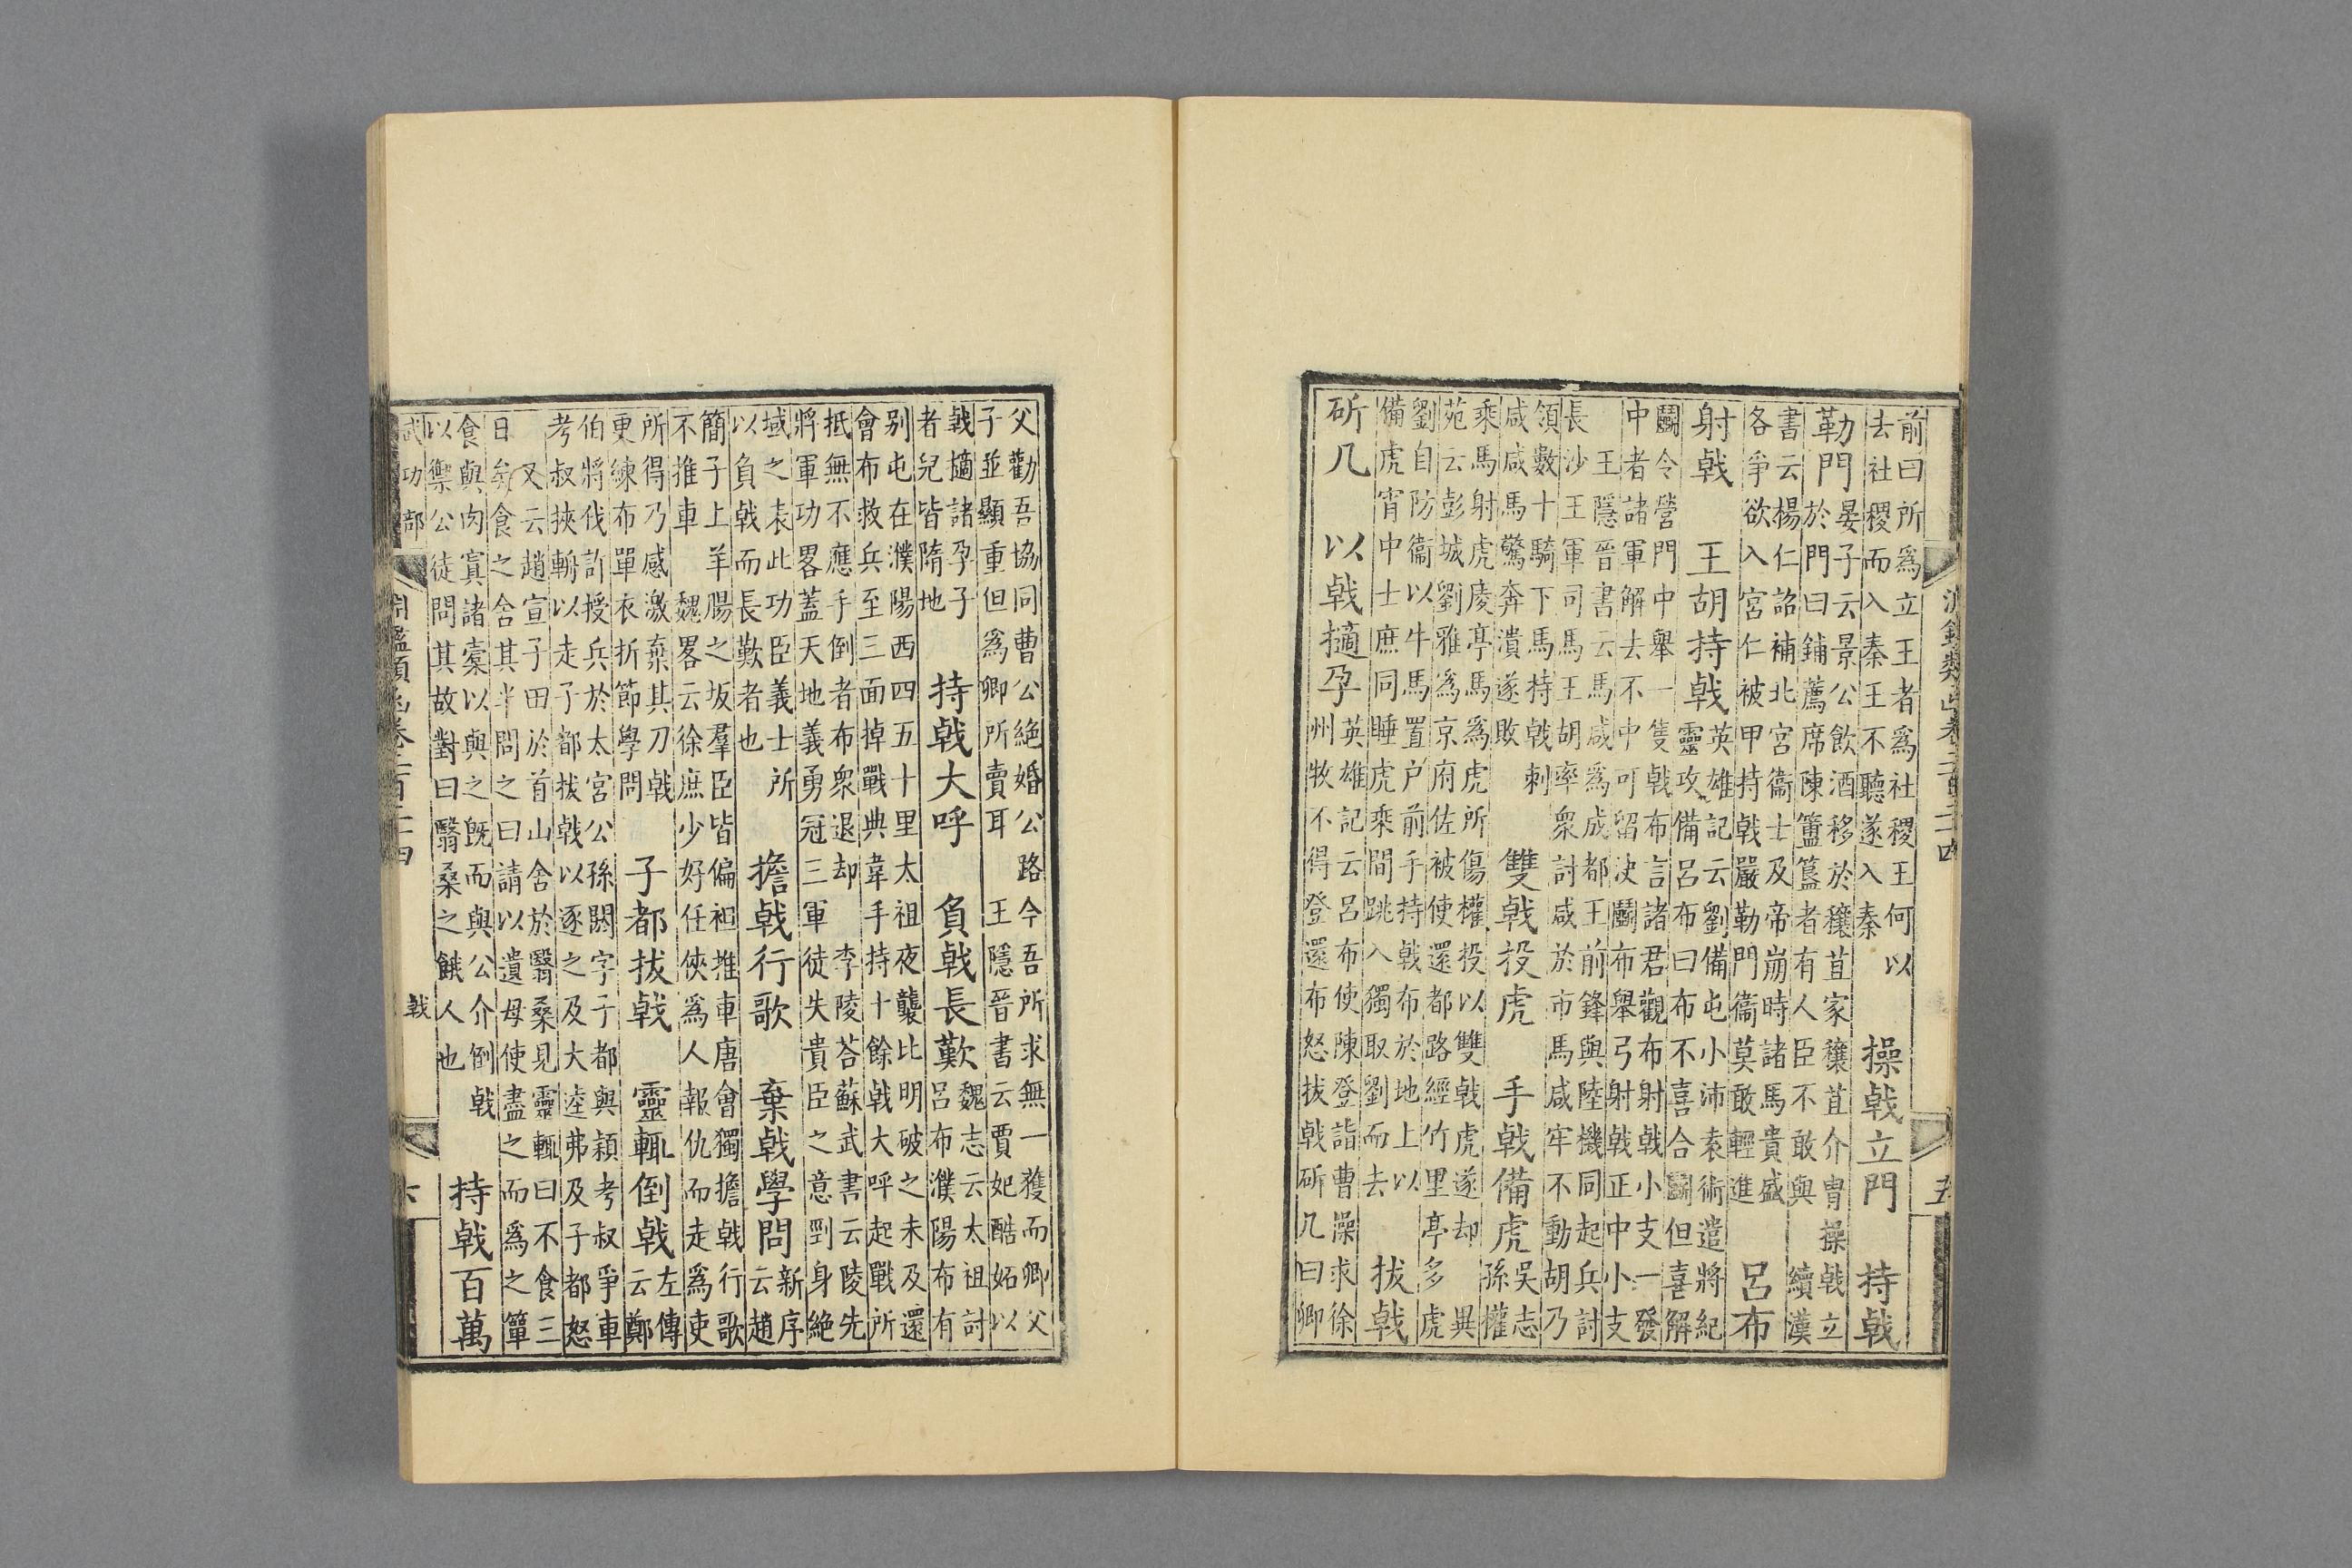 淵鑑類函卷二百二十四 五
前曰所爲立王者爲社稷王何以
去社稷而入秦王不聽遂入秦
操戟立門 持戟
勒門
晏子云景公飲酒移於穰苴家穰苴介胄操戟立
於門曰鋪薦席陳簠簋者有人臣不敢與 續漢
書云楊仁詔補北宮衞士及帝崩時諸馬貴盛
各爭欲入宮仁被甲持戟嚴勒門衞莫敢輕進
呂布
射戟 王胡持戟
英雄記云劉備屯小沛袁術遣將紀
靈攻備呂布曰布不喜合鬭但喜解
鬭令營門中舉一隻戟布言諸君觀布射戟小支一發
中者諸軍解去不中可留决鬭布舉弓射戟正中小支
王隱晉書云馬咸爲成都王前鋒與陸機同起兵討
長沙王軍司馬王胡率衆討咸於市馬咸牢不動胡乃
領數十騎下馬持戟刺
咸咸馬驚奔潰遂敗
雙戟投虎 手戟備虎
吳志
孫權
乘馬射虎庱亭馬爲虎所傷權投以雙戟虎遂却 異
苑云彭城劉雅爲京府佐被使還都路經竹里亭多虎
劉自防衞以牛馬置户前手持戟布於地上以
備虎宵中士庶同睡虎乘間跳入獨取劉而去
拔戟
斫几 以戟擿孕
英雄記云呂布使陳登詣曹澡求徐
州牧不得登還布怒拔戟斫几曰卿
父勸吾協同曹公絕婚公路今吾所求無一獲而卿父
子並顯重但爲卿所賣耳 王隱晉書云賈妃酷妬以
戟擿諸孕子
者兒皆隋地
持戟大呼 負戟長歎
魏志云太祖討
呂布濮陽布有
别屯在濮陽西四五十里太祖夜襲比明破之未及還
會布救兵至三面掉戰典韋手持十餘戟大呼起戰所
抵無不應手倒者布衆退却 李陵荅蘇武書云陵先
將軍功畧蓋天地義勇冠三軍徒失貴臣之意剄身絶
域之表此功臣義士所
以負戟而長歎者也
擔戟行歌 棄戟學問
新序
云趙
簡子上羊腸之坂羣臣皆偏袒堆車唐會獨擔戟行歌
不推車 魏畧云徐庶少好任俠爲人報仇而走爲吏
所得乃感激棄其刀戟
更練布單衣折節學問
子都拔戟 靈輒倒戟
左傳
云鄭
伯將伐許授兵於太宮公孫閼字子都與頴考叔爭車
考叔挾輈以走子都拔戟以逐之及大逵弗及子都怒
又云趙宣子田於首山舍於翳桑見靈輒曰不食三
日矣食之舍其半問之曰請以遺母使盡之而爲之簞
食與肉寘諸橐以與之旣而與公介倒戟
以禦公徒問其故對曰翳桑之餓人也
持戟百萬
武功部 淵鑑類函卷二百二十四 戟 六